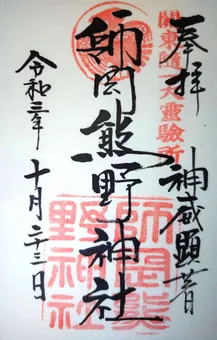 奉拝
関東随一大霊験所
神威顕著
師岡熊野神社
師岡熊
野神社
令和三年
十月二十三日